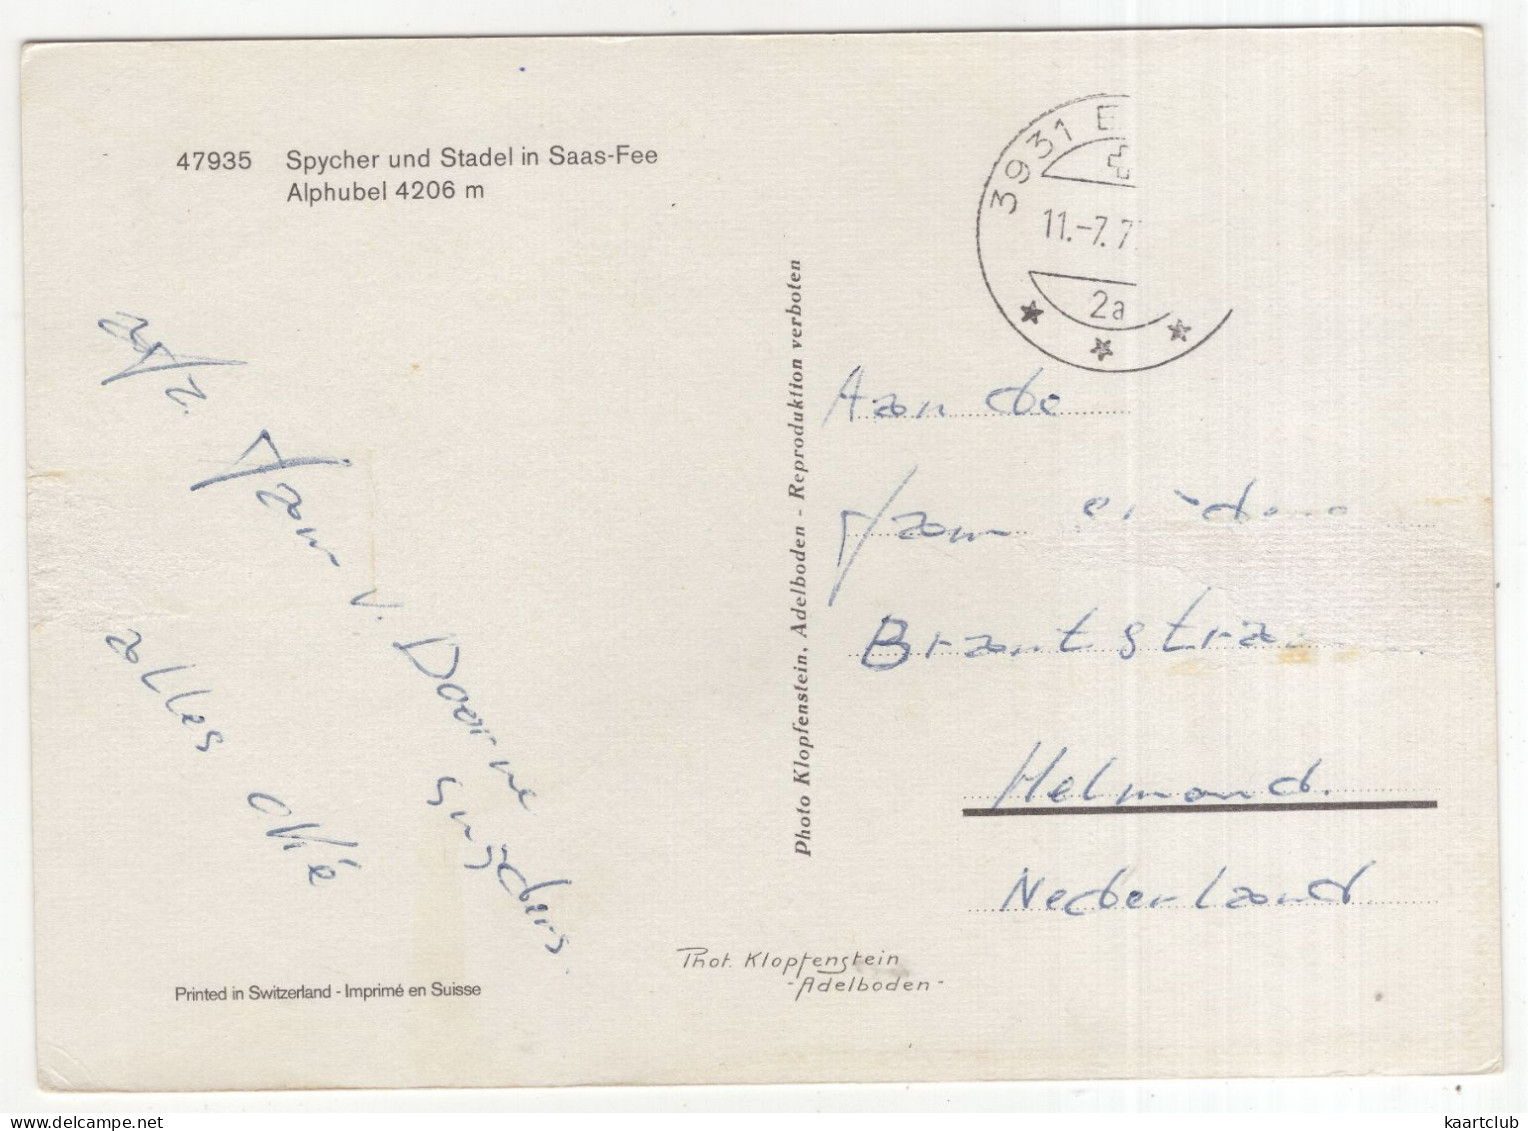 47935 Spycher und Stadel in Saas-Fee
Alphubel 4206 m
3931 E
11.-7.7
2a
afz.
fam v. Doorne
snyders
alles oké
Photo Klopfenstein, Adelboden - Reproduktion verboten
Aan de
fam
Brantstra
Helmond.
Nederland
Phot. Klopfenstein
-Adelboden-
Printed in Switzerland - Imprimé en Suisse
kaartclub